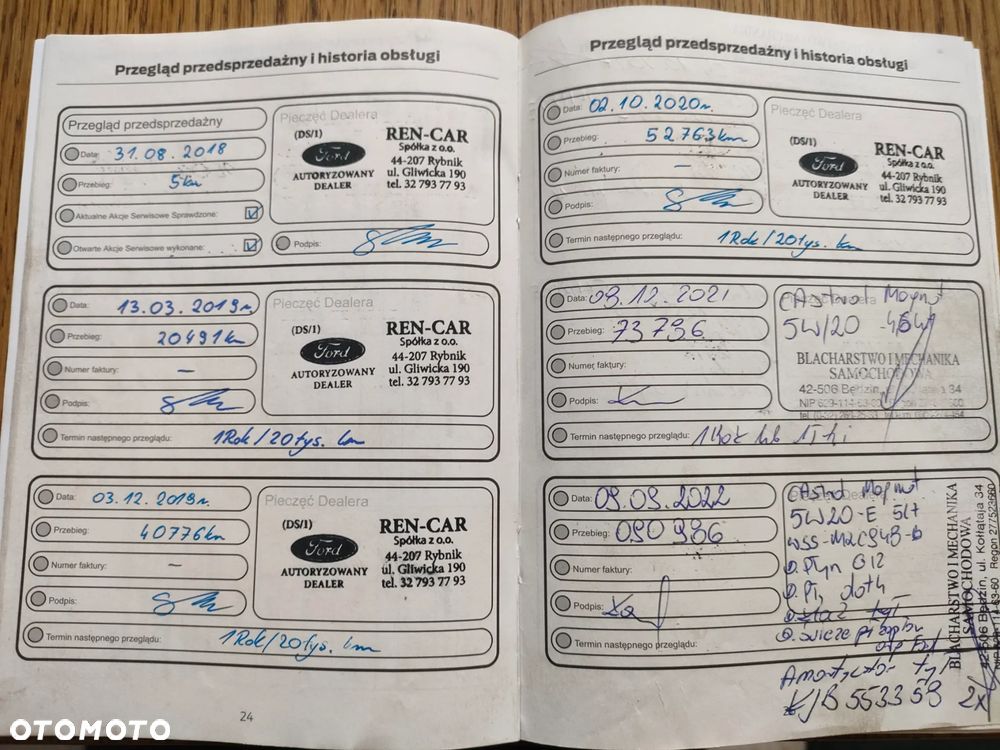 Przegląd przedsprzedażny i historia obsługi
Przegląd przedsprzedażny
Data: 31.08.2018
Przebieg: 5km
Aktualne Akcje Serwisowe Sprawdzone:
Otwarte Akcje Serwisowe wykonane:
Pieczęć Dealera
(DS/1)
Ford
AUTORYZOWANY
DEALER
REN-CAR
Spółka z o.o.
44-207 Rybnik
ul. Gliwicka 190
tel. 32 793 77 93
Podpis:
Data: 13.03.2019r.
Przebieg: 20491km
Numer faktury: –
Podpis:
Pieczęć Dealera
(DS/1)
Ford
AUTORYZOWANY
DEALER
REN-CAR
Spółka z o.o.
44-207 Rybnik
ul. Gliwicka 190
tel. 32 793 77 93
Termin następnego przeglądu: 1Rok/20tys. km
Data: 03.12.2019r.
Przebieg: 40776km
Numer faktury: –
Podpis:
Pieczęć Dealera
(DS/1)
Ford
AUTORYZOWANY
DEALER
REN-CAR
Spółka z o.o.
44-207 Rybnik
ul. Gliwicka 190
tel. 32 793 77 93
Termin następnego przeglądu: 1Rok/20tys. km
24
Przegląd przedsprzedażny i historia obsługi
Data: 02.10.2020r.
Przebieg: 52763km
Numer faktury: –
Podpis:
Pieczęć Dealera
(DS/1)
Ford
AUTORYZOWANY
DEALER
REN-CAR
Spółka z o.o.
44-207 Rybnik
ul. Gliwicka 190
tel. 32 793 77 93
Termin następnego przeglądu: 1Rok/20tys. km
Data: 09.12.2021
Przebieg: 73796
Numer faktury:
Podpis:
Pieczęć Dealera
5W/20
BLACHARSTWO I MECHANIKA
SAMOCHODOWA
42-506 Będzin, 34
Termin następnego przeglądu:
Data: 09.09.2022
Przebieg: 090 936
Numer faktury:
Podpis:
Termin następnego przeglądu:
5W20-E 5lt
WSS-M2C948-B
Płyn G12
BLACHARSTWO I MECHANIKA
SAMOCHODOWA
42-506 Będzin, ul. Kołłątaja 34
Regon 277523660
KJB 553359 2x
OTOMOTO